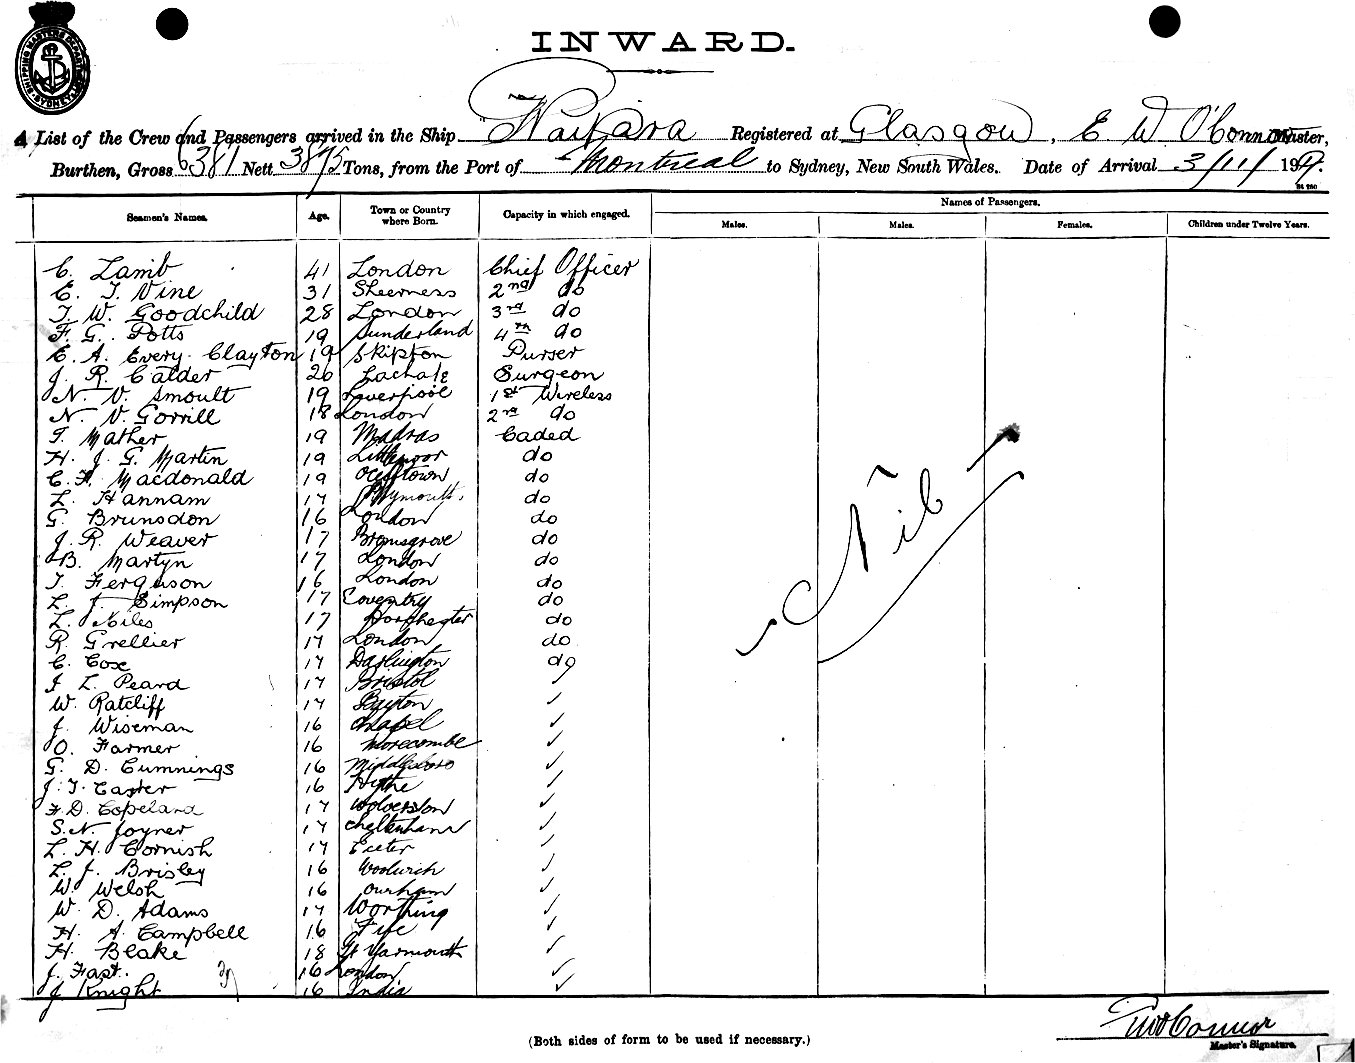 SHIPPING MASTERS DEPARTMENT SYDNEY
INWARD.
A List of the Crew and Passengers arrived in the Ship "Waipara Registered at Glasgow, E W O'Connor Master,
Burthen, Gross 6381 Nett Tons, from the Port of Montreal to Sydney, New South Wales. Date of Arrival 3/11/19
Seamen's Names. Age. Town or Country where Born. Capacity in which engaged. Names of Passengers.
Males. Males. Females. Children under Twelve Years.
C. Lamb 41 London Chief Officer
E. T. Vine 31 Sheerness 2nd do
T. W. Goodchild 28 London 3rd do
F. G. Potts 19 Sunderland 4th do
E. A. Every-Clayton 19 Skipton Purser
J. R. Calder 26 Surgeon
N. V. Smoult 19 Liverpool 1st Wireless
N. V. Gorrill 18 London 2nd do
T. Mather 19 Madras Caded
H. J. G. Martin 19 do
C. H. Macdonald 19 do
L. Hannam 17 Plymouth do
G. Brunsdon 16 London do
J. R. Weaver 17 Bromsgrove do
B. Martyn 17 London do
T. Ferguson 16 London do
L. J. Simpson 17 Coventry do
L. Niles 17 Dorchester do
R. Grellier 17 London do
C. Cox 17 Darlington do
J L. Peard 17 Bristol ✓
W. Ratcliff 17 ✓
J. Wiseman 16 Chapel ✓
O. Farmer 16 Morecombe ✓
G. D. Cummings 16 Middlesboro ✓
J. T. Caster 16 Hythe ✓
F. D. Copeland 17 ✓
S. N. Joyner 17 Cheltenham ✓
L. H. Cornish 17 Exeter ✓
L. J. Brisley 16 Woolwich ✓
W. Welsh 16 Durham ✓
W. D. Adams 17 Worthing ✓
H. A. Campbell 16 Fife ✓
H. Blake 18 Gt Yarmouth ✓
J. Fast. 16 London ✓
J Knight 16 India ✓
Nil
EWO'Connor
Master's Signature.
(Both sides of form to be used if necessary.)